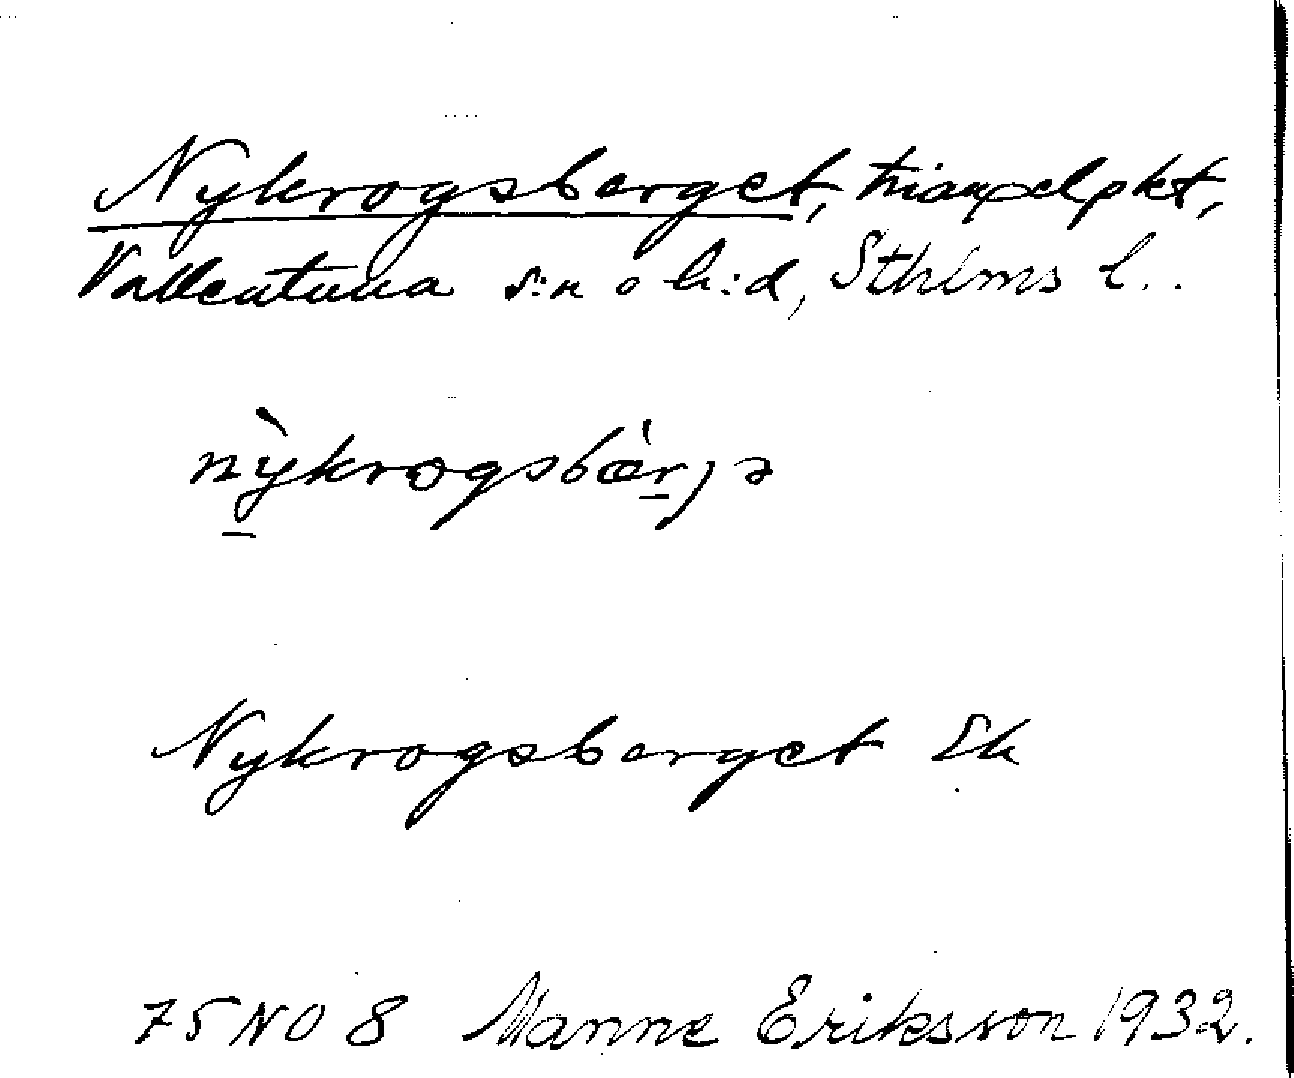 Nykrogsberget, triangelpkt,
Vallentuna s:n o h:d, Sthlms l..
nỳkrogsbæ̀rjə
Nykrogsberget Ek
75 NO 8 Manne Eriksson 1932.